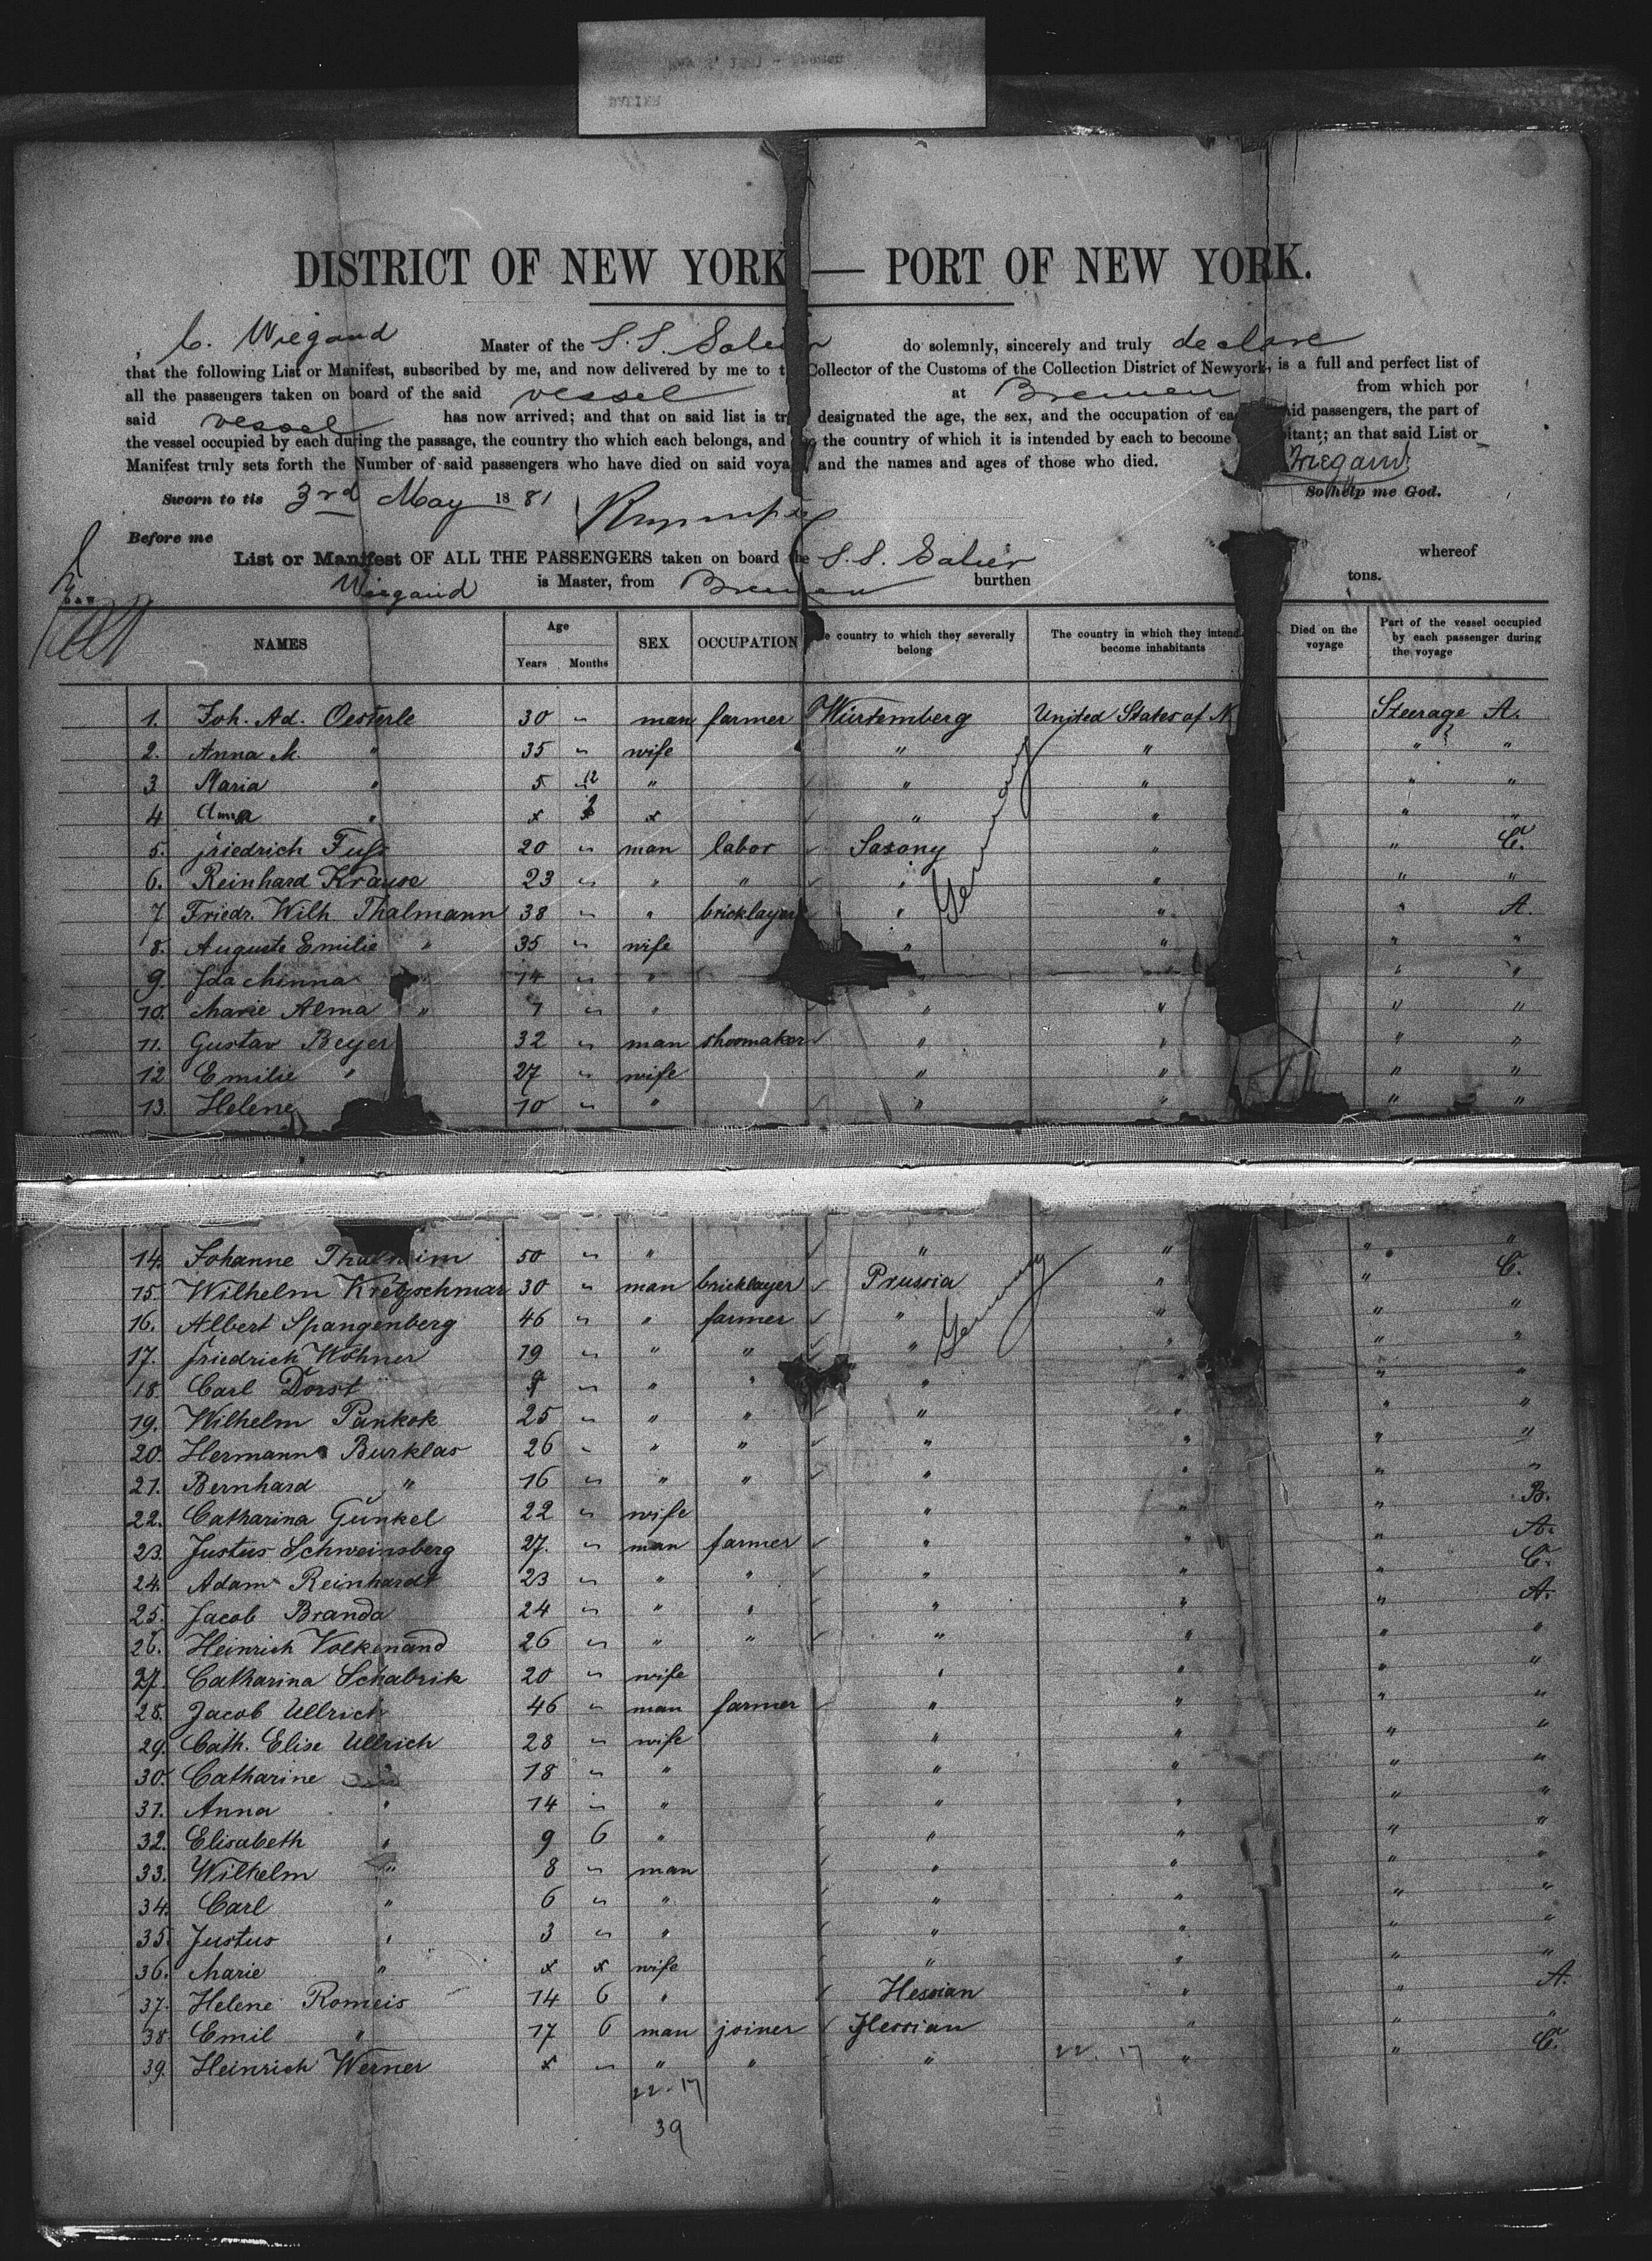 DISTRICT OF NEW YORK — PORT OF NEW YORK.
C. Wiegand Master of the S. S. Salier do solemnly, sincerely and truly declare
that the following List or Manifest, subscribed by me, and now delivered by me to t Collector of the Customs of the Collection District of Newyork, is a full and perfect list of
all the passengers taken on board of the said vessel at Bremen from which por
said vessel has now arrived; and that on said list is tr designated the age, the sex, and the occupation of ea aid passengers, the part of
the vessel occupied by each during the passage, the country tho which each belongs, and the country of which it is intended by each to become bitant; an that said List or
Manifest truly sets forth the Number of said passengers who have died on said voya and the names and ages of those who died. Wiegand
Sworn to tis 3rd May 1881 So help me God.
Before me
List or Manifest OF ALL THE PASSENGERS taken on board the S. S. Salier whereof
Wiegand is Master, from Bremen burthen tons.
NAMES Age Years Months SEX OCCUPATION e country to which they severally belong The country in which they intend become inhabitants Died on the voyage Part of the vessel occupied by each passenger during the voyage
1. Joh. Ad. Oesterle 30 " man farmer Würtemberg United States of N Steerage A.
2. Anna M. " 35 " wife " " " "
3 Maria " 5 12 " " " " "
4 Anna " x x " " " "
5. friedrich Fuß 20 " man labor Saxony " " C.
6. Reinhard Krause 23 " " " " " " "
7 Friedr. Wilh. Thalmann 38 " " bricklayer " " " A.
8. Auguste Emilie " 35 " wife " " " "
9. Ida Minna " 14 " " " " " "
10. Marie Alma " 7 " " " " " "
11. Gustav Beyer 32 " man shoomaker " " " "
12 Emilie " 27 " wife " " " "
13. Helene 10 " " " " " "
Germany
14. Johanne 50 " " " " " "
15. Wilhelm Kretzschmar 30 " man bricklayer Prussia " " C.
16. Albert Spangenberg 46 " " farmer " " " "
17. friedrich Wöhner 19 " " " " " " "
18. Carl Dorst " " " " " " "
19. Wilhelm Pankok 25 " " " " " " "
20. Hermann Burklas 26 " " " " " " "
21. Bernhard " 16 " " " " " " "
22. Catharina Gunkel 22 " wife " " " B.
23. Justus Schweinsberg 27. " man farmer " " " A.
24. Adam Reinhardt 23 " " " " " " C.
25. Jacob Branda 24 " " " " " " A.
26. Heinrich Volkenand 26 " " " " " " "
27. Catharina Schabrik 20 " wife " " " "
28. Jacob Ullrich 46 " man farmer " " " "
29. Cath. Elise Ullrich 28 " wife " " " "
30. Catharine 18 " " " " " "
31. Anna " 14 " " " " " "
32. Elisabeth " 9 6 " " " " "
33. Wilhelm " 8 " man " " " "
34. Carl " 6 " " " " " "
35. Justus " 3 " " " " " "
36. Marie " x x wife " " " "
37. Helene Romeis 14 6 " Hessian " " A.
38. Emil " 17 6 man joiner Hessian " " "
39. Heinrich Werner x " " " " 22. 17 " " C.
Germany
22 - 17
39